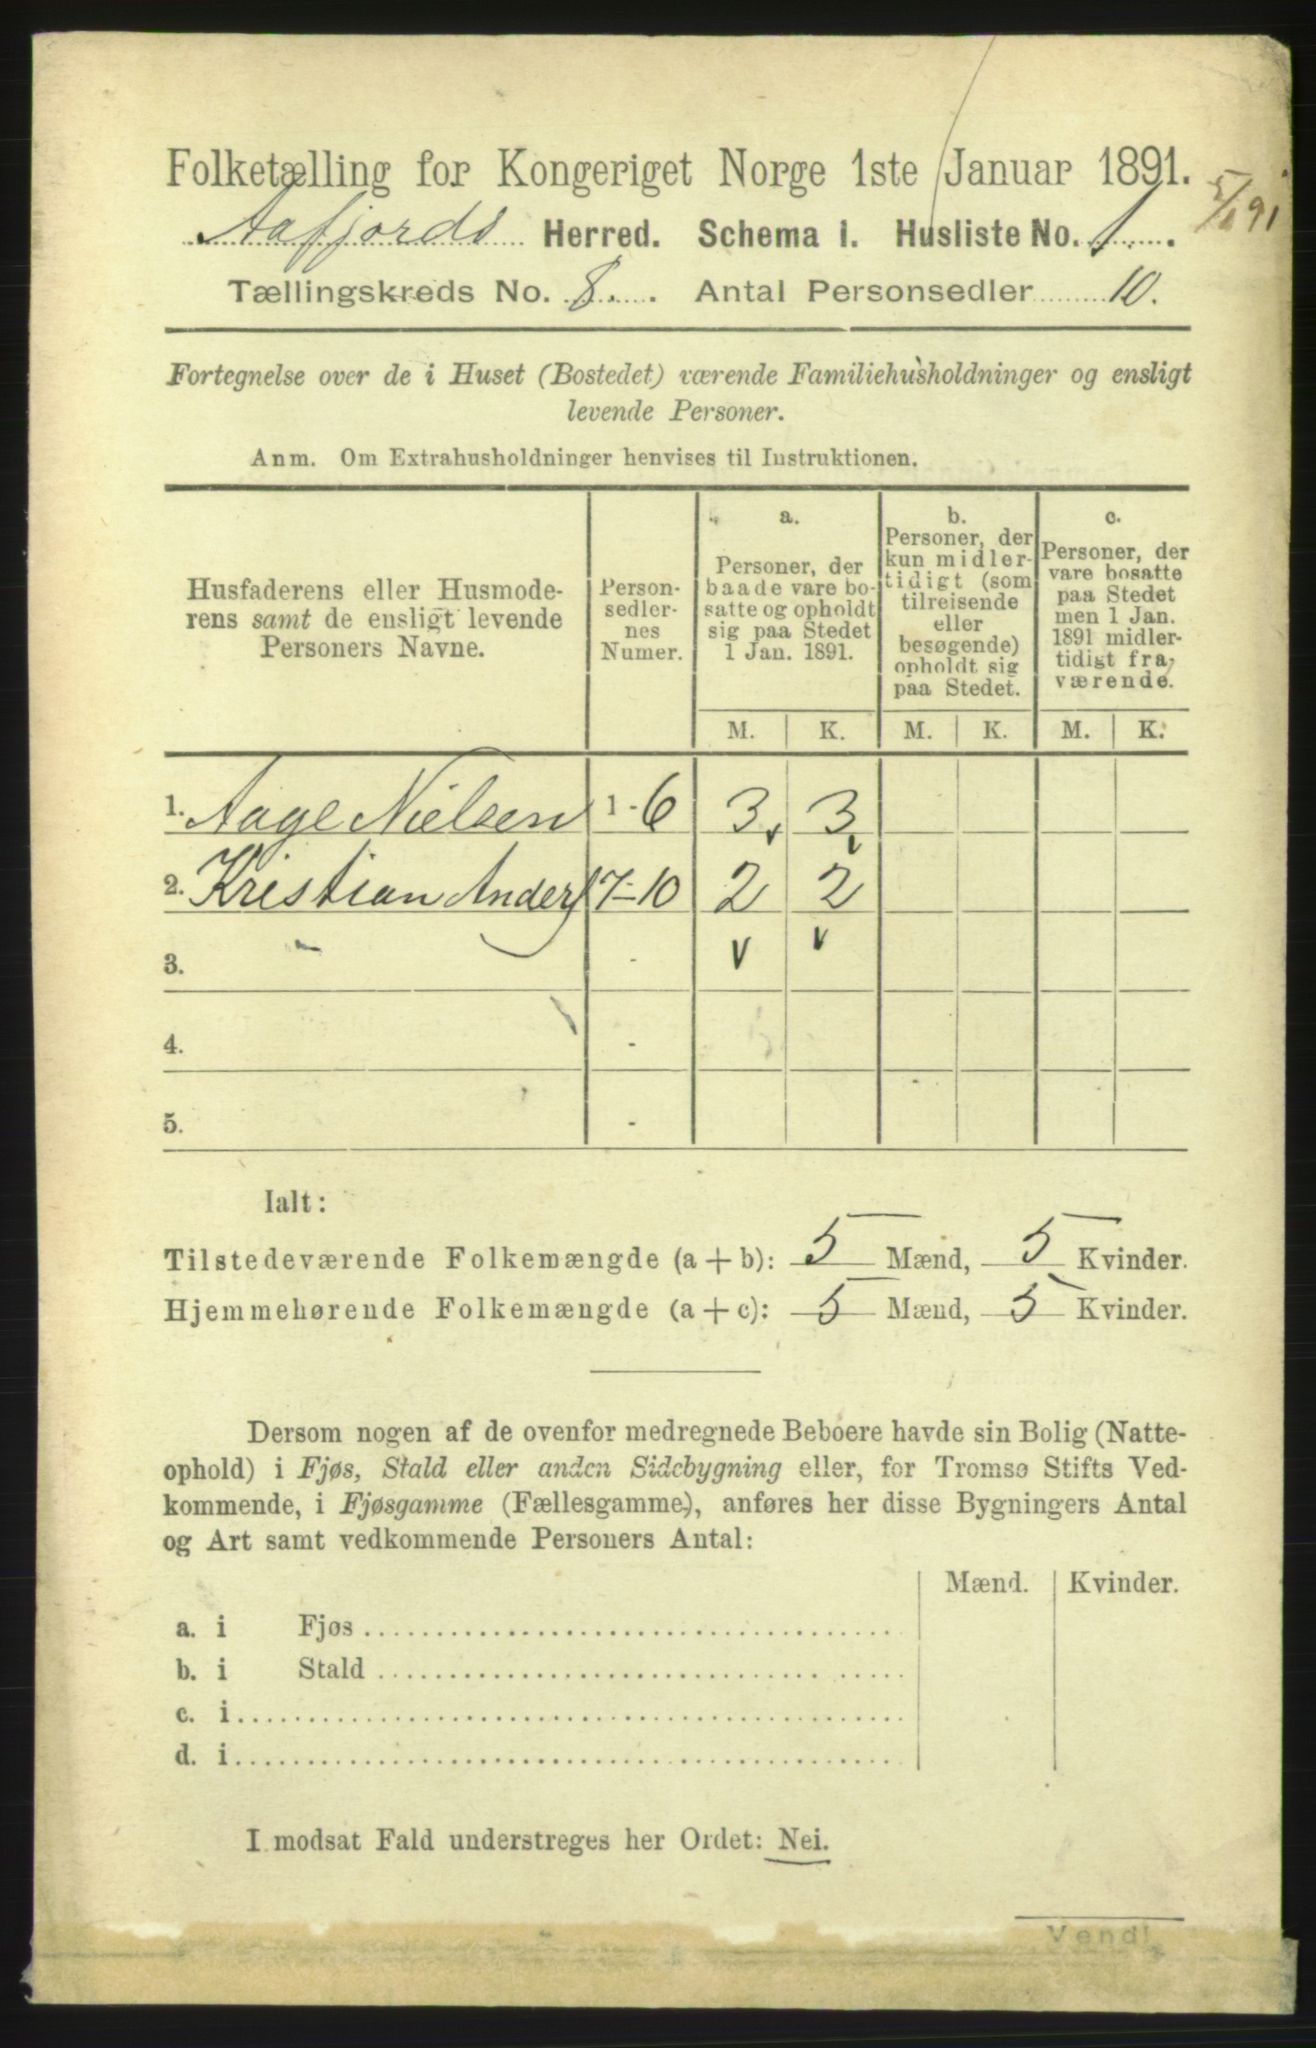 Folketælling for Kongeriget Norge 1ste Januar 1891.
5/1 91
Aafjords Herred. Schema I. Husliste No. 1.
Tællingskreds No. 8. Antal Personsedler 10.
Fortegnelse over de i Huset (Bostedet) værende Familiehusholdninger og ensligt
levende Personer.
Anm. Om Extrahusholdninger henvises til Instruktionen.
Husfaderens eller Husmode-
rens samt de ensligt levende
Personers Navne.
Person-
sedler-
nes
Numer.
a.
Personer, der
baade vare bo-
satte og opholdt
sig paa Stedet
1 Jan. 1891.
b.
Personer, der
kun midler-
tidigt (som
tilreisende
eller
besøgende)
opholdt sig
paa Stedet.
c.
Personer, der
vare bosatte
paa Stedet
men 1 Jan.
1891 midler-
tidigt fra-
værende.
M. K. M. K. M. K.
1. Aage Nielsen 1-6 3 3
2. Kristian Anders 7-10 2 2
3. -
4. -
5. -
Ialt:
Tilstedeværende Folkemængde (a + b): 5 Mænd, 5 Kvinder.
Hjemmehørende Folkemængde (a + c): 5 Mænd, 5 Kvinder.
Dersom nogen af de ovenfor medregnede Beboere havde sin Bolig (Natte-
ophold) i Fjøs, Stald eller anden Sidebygning eller, for Tromsø Stifts Ved-
kommende, i Fjøsgamme (Fællesgamme), anføres her disse Bygningers Antal
og Art samt vedkommende Personers Antal:
Mænd. Kvinder.
a. i Fjøs
b. i Stald
c. i
d. i
I modsat Fald understreges her Ordet: Nei.
Vend!